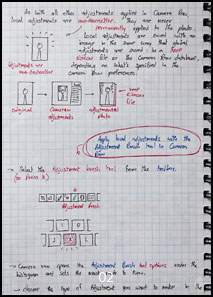 As with all other adjustments applied in Camera Raw,
local adjustments are non-destructive. They are never
permanently applied to the photo.
Local adjustments are saved with an
image in the same way that global
adjustments are saved: in a XMP
sidecar file or the Camera Raw database,
depending on what's specified in the
Camera Raw preferences.
adjustments are
non-destructive
original
Camera raw
adjustments
adjustmented
photo
XMP
sidecar
file
Apply local adjustments with the
Adjustment Brush tool in Camera
Raw
→ Select the Adjustment brush tool from the toolbar.
(or Press K)
Adjustment brush
→ Camera raw opens the Adjustment Brush tool options under the
Histogram and sets the
→ choose the type of Adjustment you want to make in the
02